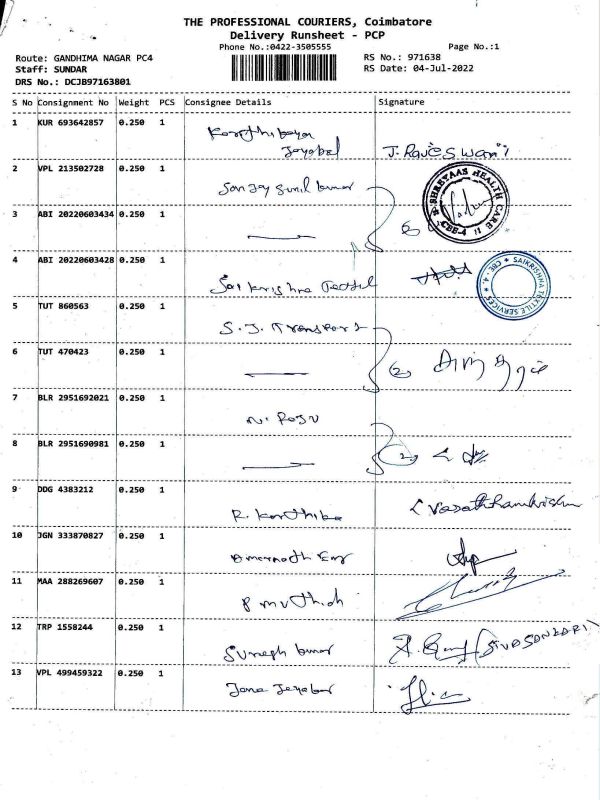 THE PROFESSIONAL COURIERS, Coimbatore
Delivery Runsheet - PCP
Phone No.:0422-3505555
Page No.:1
Route: GANDHIMA NAGAR PC4
RS No.: 971638
Staff: SUNDAR
RS Date: 04-Jul-2022
DRS No.: DCJB97163801
S No Consignment No Weight PCS Consignee Details Signature
1 KUR 693642857 0.250 1
Jeyabal J. Rajeswari
2 VPL 213502728 0.250 1
Sanjay Sunil Kumar
SHREYAAS HEALTH CARE
CBE-4
3 ABI 20220603434 0.250 1
4 ABI 20220603428 0.250 1
Sai Krishna
SAIKRISHNA TEXTILE SERVICES CBE-4
5 TUT 860563 0.250 1
S.J. Transport
6 TUT 470423 0.250 1
(2)
7 BLR 2951692021 0.250 1
N. Raju
8 BLR 2951690981 0.250 1
(2)
9 DDG 4383212 0.250 1
R. Karthika
10 JGN 333870827 0.250 1
Amarnath
11 MAA 288269607 0.250 1
P Muthiah
12 TRP 1558244 0.250 1
Suresh Kumar (SIVASANKARI)
13 VPL 499459322 0.250 1
Jana Jeyabar